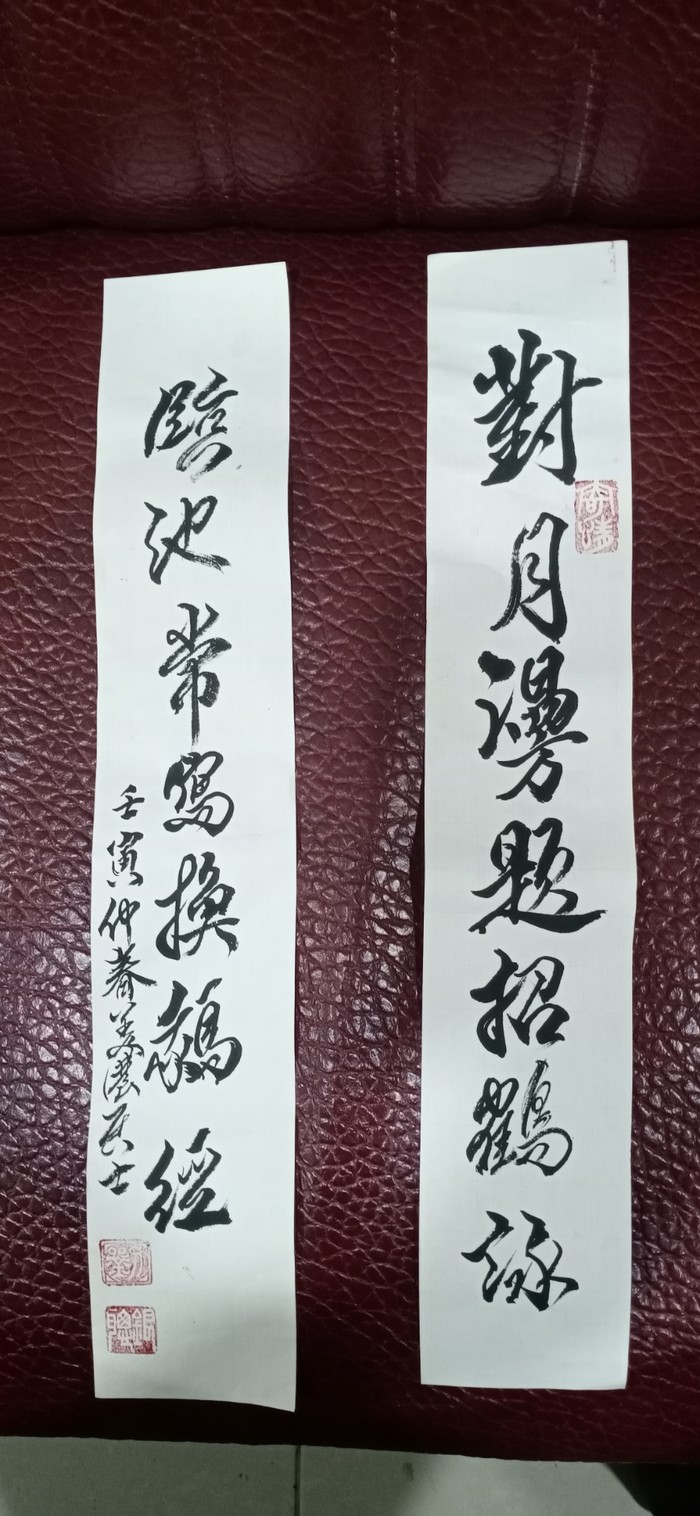 對月漫題招鶴詠
臨池常寫換鵝經
壬寅仲春 居士